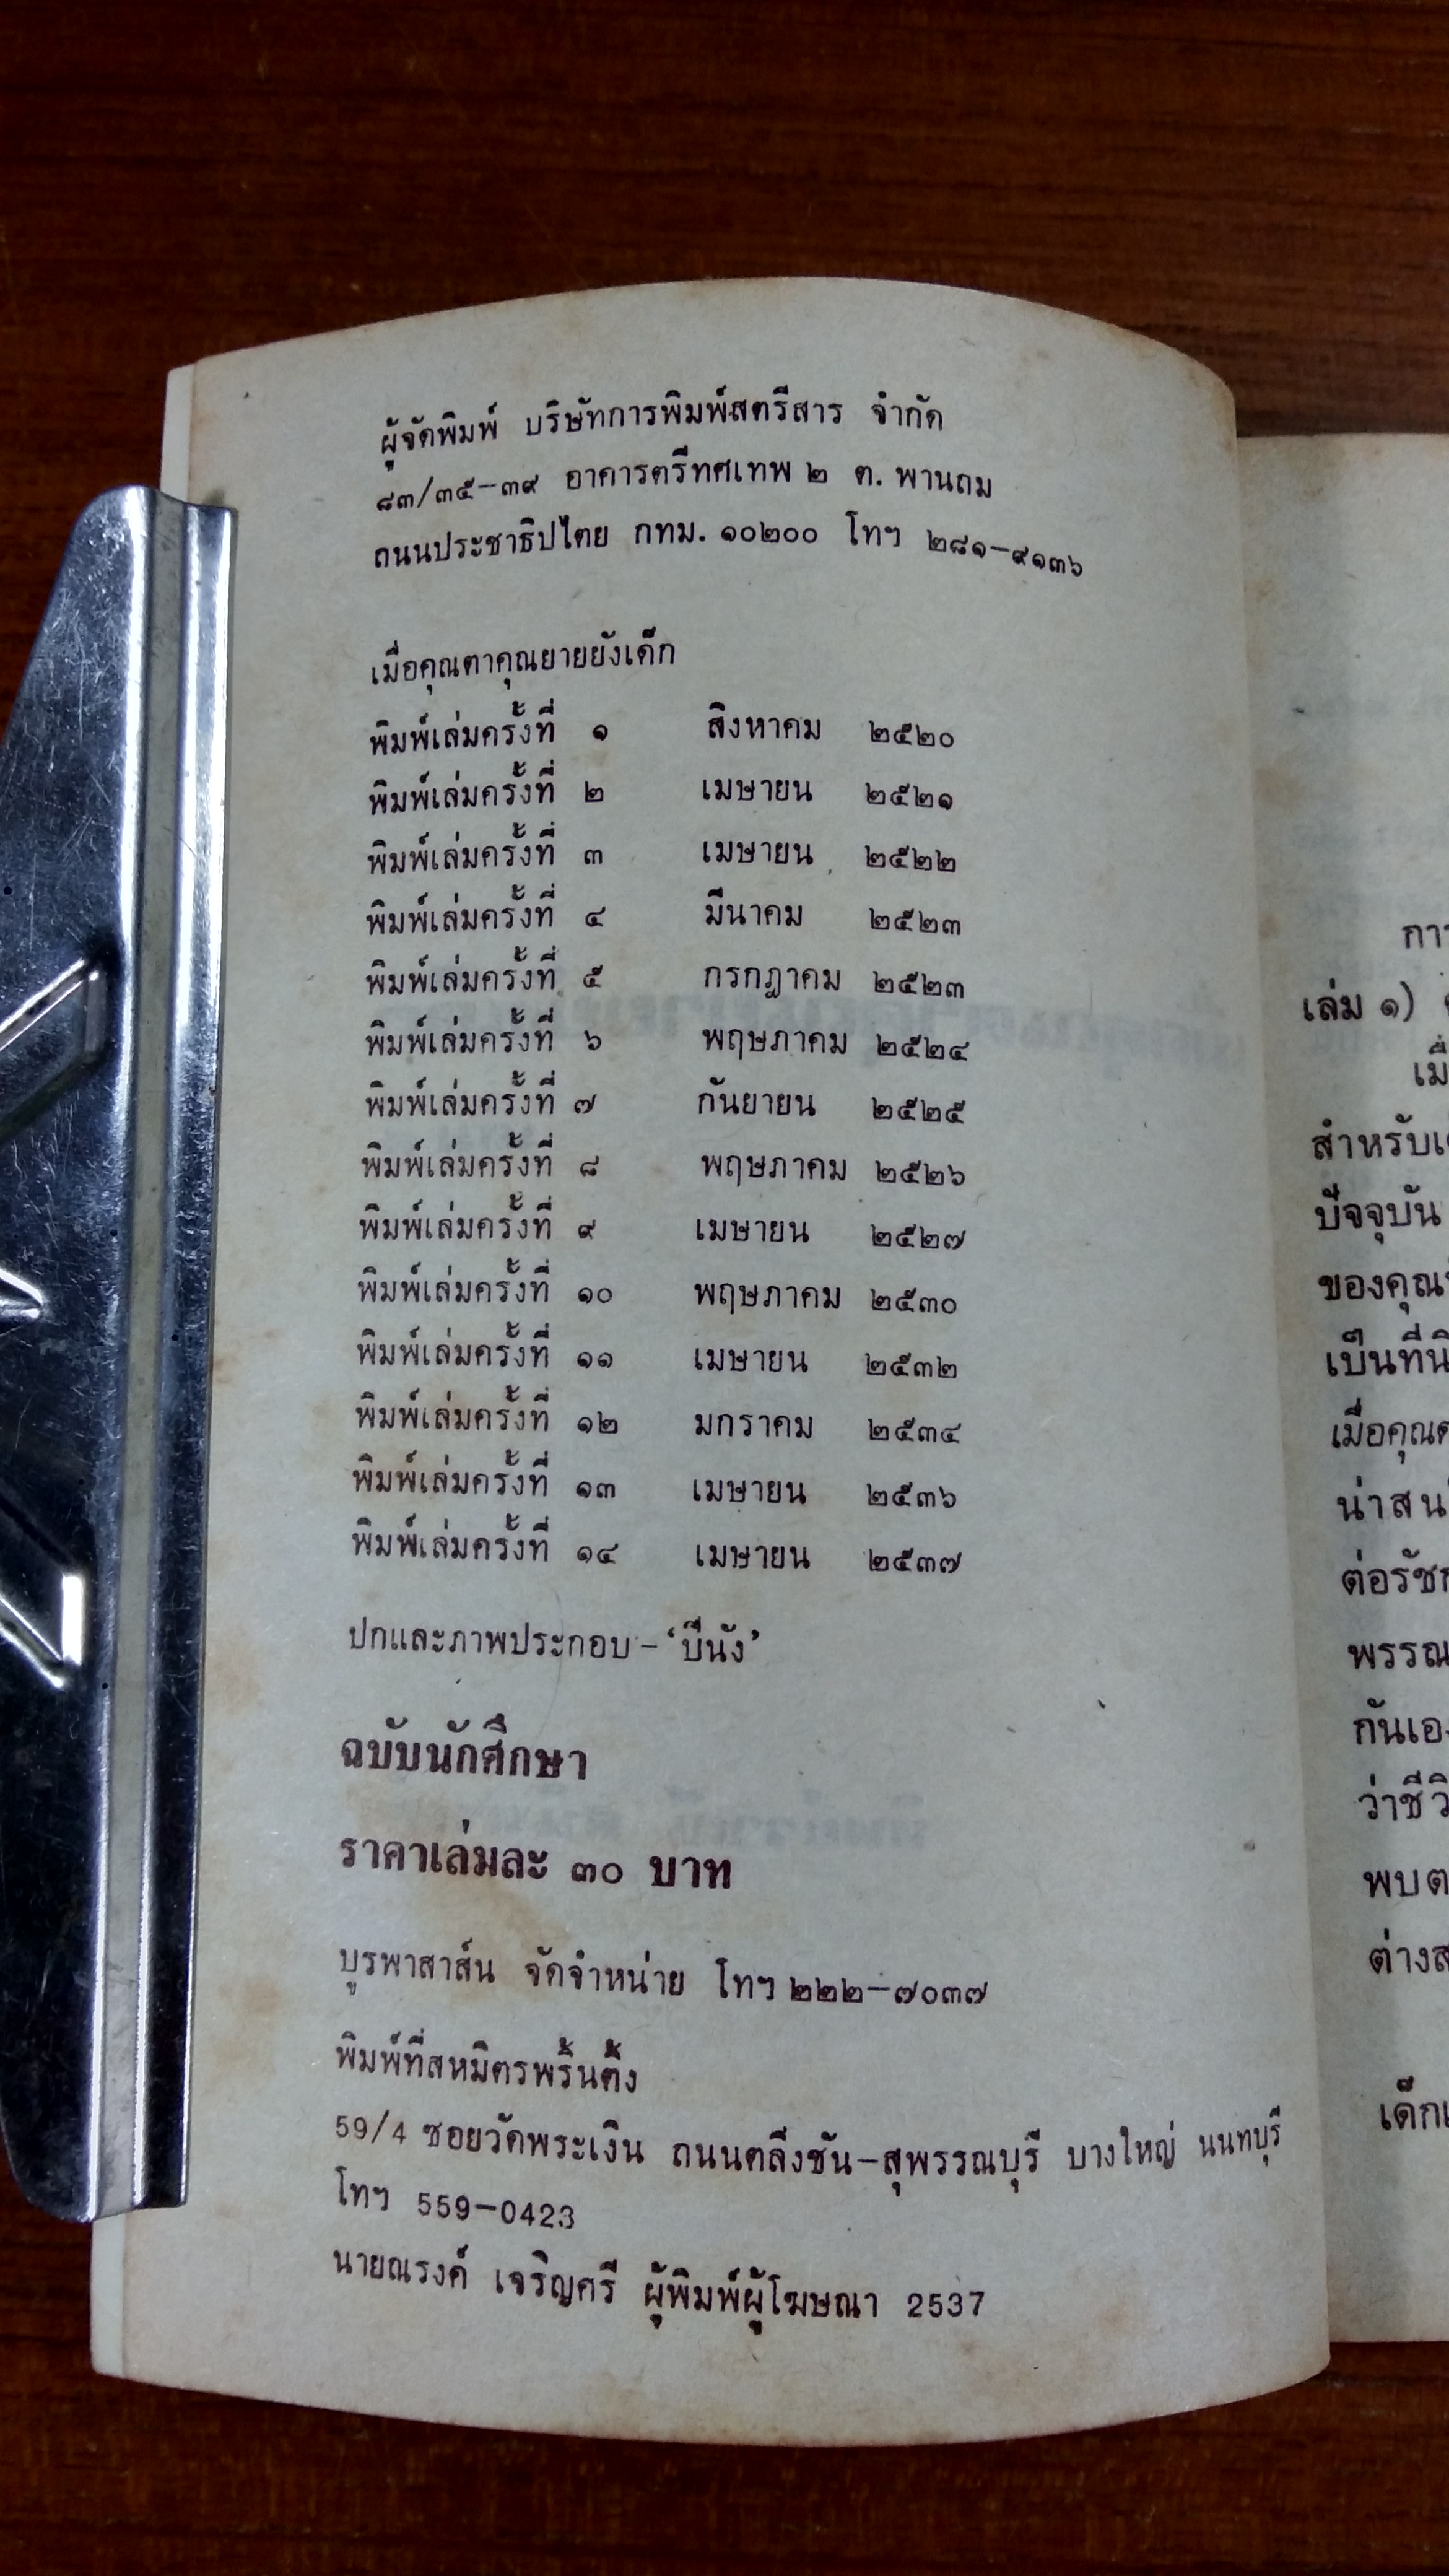 ผู้จัดพิมพ์ บริษัทการพิมพ์สตรีสาร จำกัด
๘๓/๓๕-๓๙ อาคารตรีทศเทพ ๒ ต. พานถม
ถนนประชาธิปไตย กทม. ๑๐๒๐๐ โทฯ ๒๘๑-๙๑๓๖
เมื่อคุณตาคุณยายยังเด็ก
พิมพ์เล่มครั้งที่ ๑ สิงหาคม ๒๕๒๐
พิมพ์เล่มครั้งที่ ๒ เมษายน ๒๕๒๑
พิมพ์เล่มครั้งที่ ๓ เมษายน ๒๕๒๒
พิมพ์เล่มครั้งที่ ๔ มีนาคม ๒๕๒๓
พิมพ์เล่มครั้งที่ ๕ กรกฎาคม ๒๕๒๓
พิมพ์เล่มครั้งที่ ๖ พฤษภาคม ๒๕๒๔
พิมพ์เล่มครั้งที่ ๗ กันยายน ๒๕๒๕
พิมพ์เล่มครั้งที่ ๘ พฤษภาคม ๒๕๒๖
พิมพ์เล่มครั้งที่ ๙ เมษายน ๒๕๒๗
พิมพ์เล่มครั้งที่ ๑๐ พฤษภาคม ๒๕๓๐
พิมพ์เล่มครั้งที่ ๑๑ เมษายน ๒๕๓๒
พิมพ์เล่มครั้งที่ ๑๒ มกราคม ๒๕๓๔
พิมพ์เล่มครั้งที่ ๑๓ เมษายน ๒๕๓๖
พิมพ์เล่มครั้งที่ ๑๔ เมษายน ๒๕๓๗
ปกและภาพประกอบ-‘บีนัง’
ฉบับนักศึกษา
ราคาเล่มละ ๓๐ บาท
บูรพาสาส์น จัดจำหน่าย โทฯ ๒๒๒-๗๐๓๗
พิมพ์ที่สหมิตรพริ้นติ้ง
59/4 ซอยวัดพระเงิน ถนนตลิ่งชัน-สุพรรณบุรี บางใหญ่ นนทบุรี
โทฯ 559-0423
นายณรงค์ เจริญศรี ผู้พิมพ์ผู้โฆษณา 2537
เล่ม ๑)
ปัจจุบัน